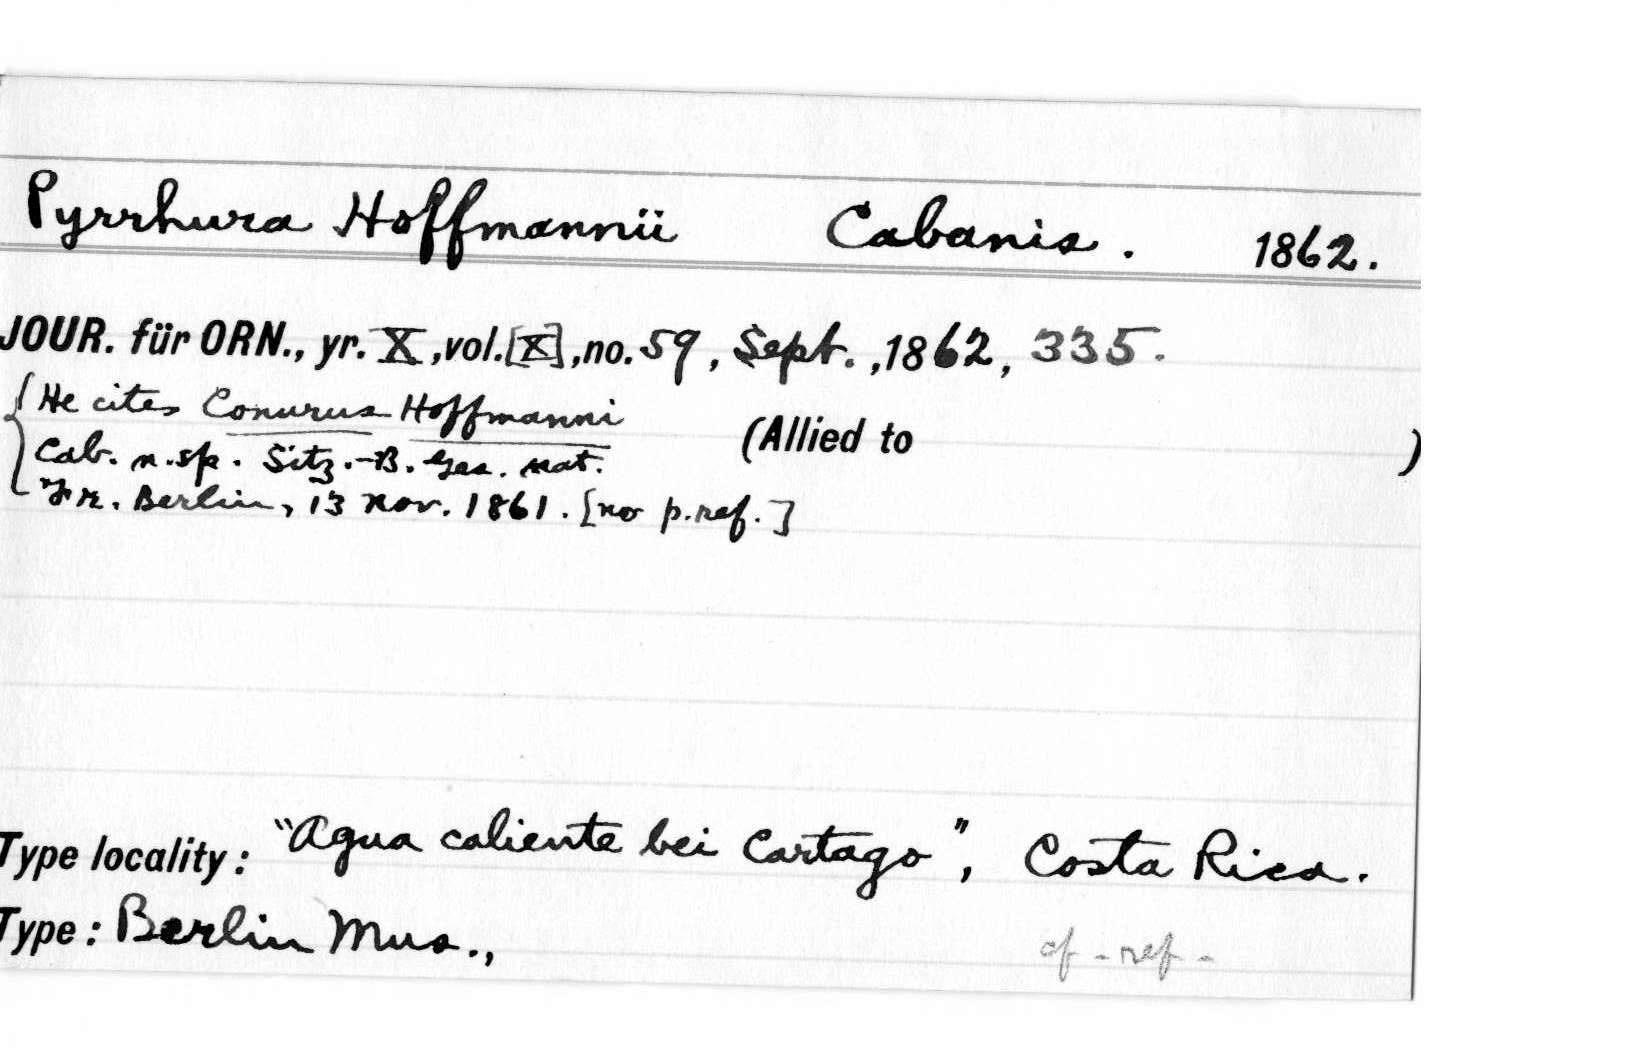 Pyrrhura Hoffmannii Cabanis. 1862.
JOUR. für ORN., yr. X, vol. [X], no. 59, Sept., 1862, 335.
{He cites Conurus Hoffmanni
Cab. n.sp. Sitz.-B. Ges. nat.
Fr. Berlin, 13 Nov. 1861. [no p.ref.]
(Allied to )
Type locality: "Agua caliente bei Cartago", Costa Rica.
Type: Berlin Mus.,
cf - ref -